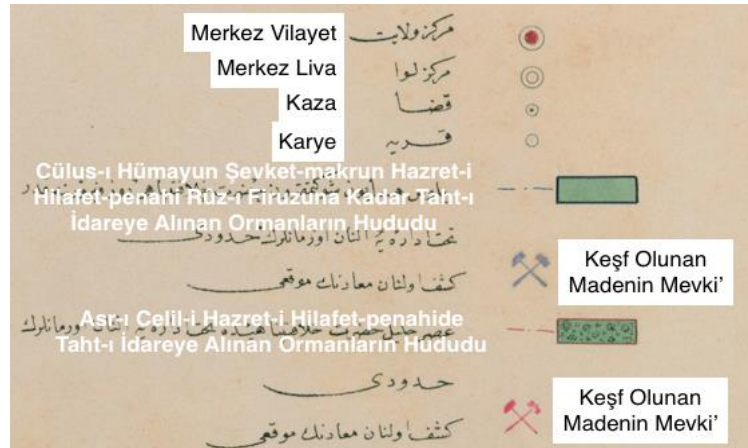 Merkez Vilayet مركز ولايت
Merkez Liva مركز لوا
Kaza قضا
Karye قريه
Cülus-ı Hümayun Şevket-makrun Hazret-i
Hilafet-penahi Rüz-ı Firuzuna Kadar Taht-ı
İdareye Alınan Ormanların Hududu
تحت اداره يه آلنان اورمانلرك حدودى
كشف اولنان معادنك موقعى
Keşf Olunan
Madenin Mevki’
Asr-ı Celil-i Hazret-i Hilafet-penahide
Taht-ı İdareye Alınan Ormanların Hududu
حدودى
كشف اولنان معادنك موقعى
Keşf Olunan
Madenin Mevki’